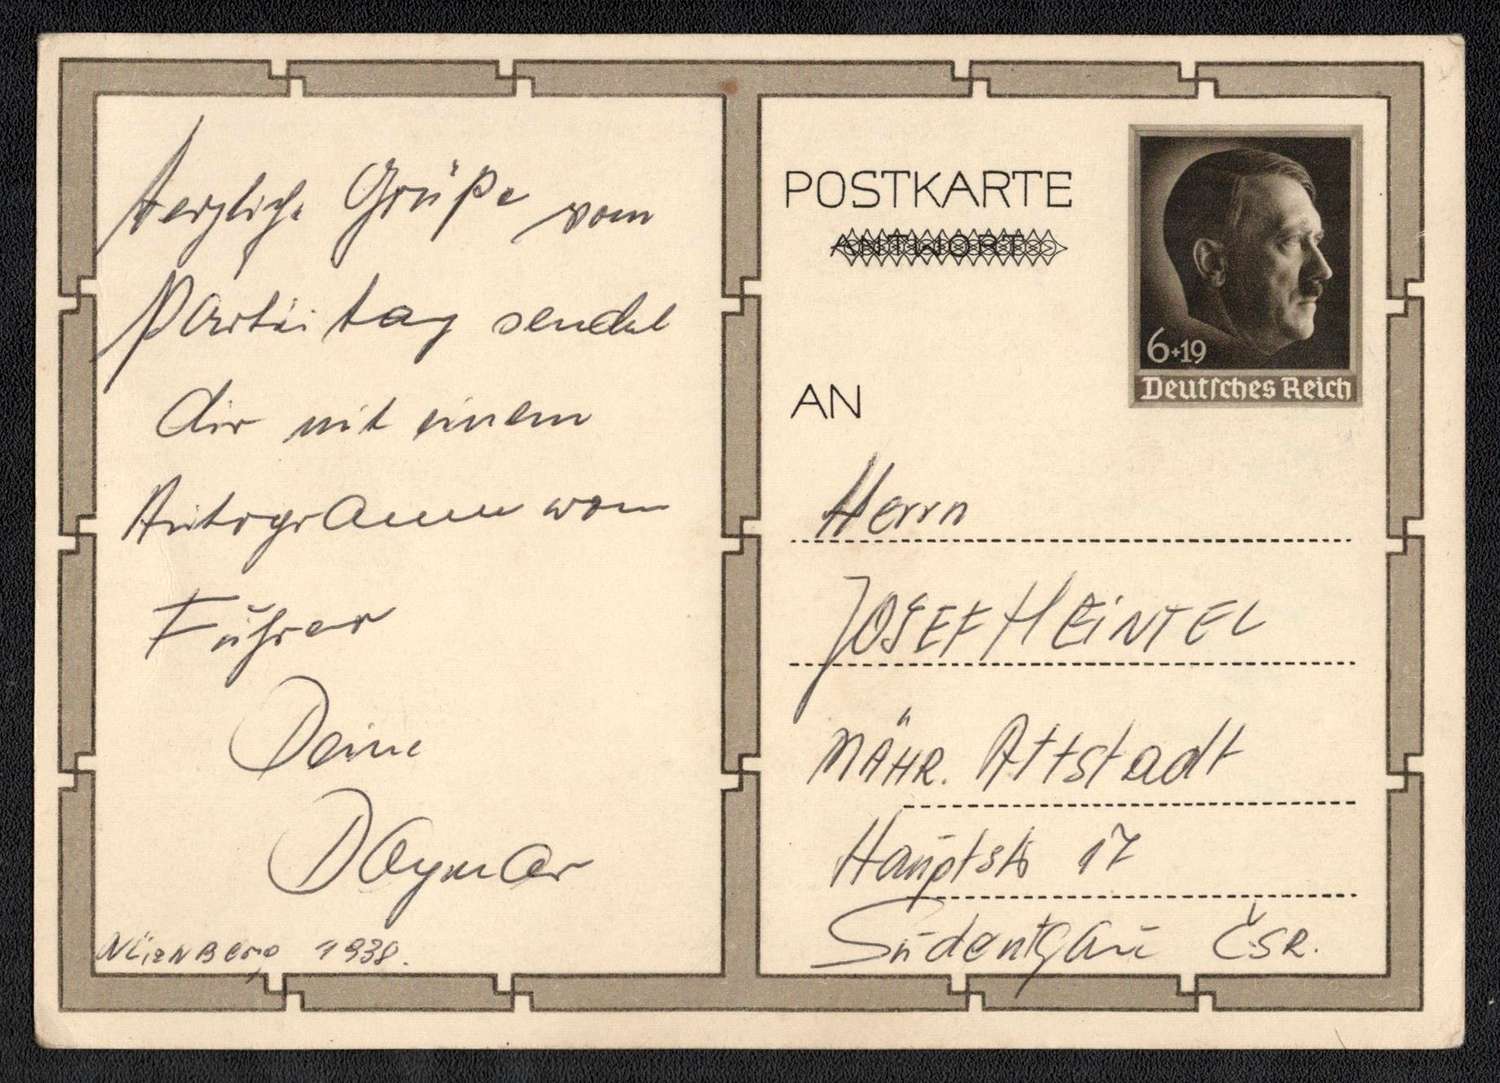 Herzliche Grüße vom
Parteitag sendet
dir mit einem
Autogramm vom
Führer
Deine
Dagmar
Nürnberg 1938.
POSTKARTE
ANTWORT
6+19
Deutsches Reich
AN
Herrn
JOSEF HEiNTEL
MÄHR. Altstadt
Hauptstr 17
Sudentgau ČSR.